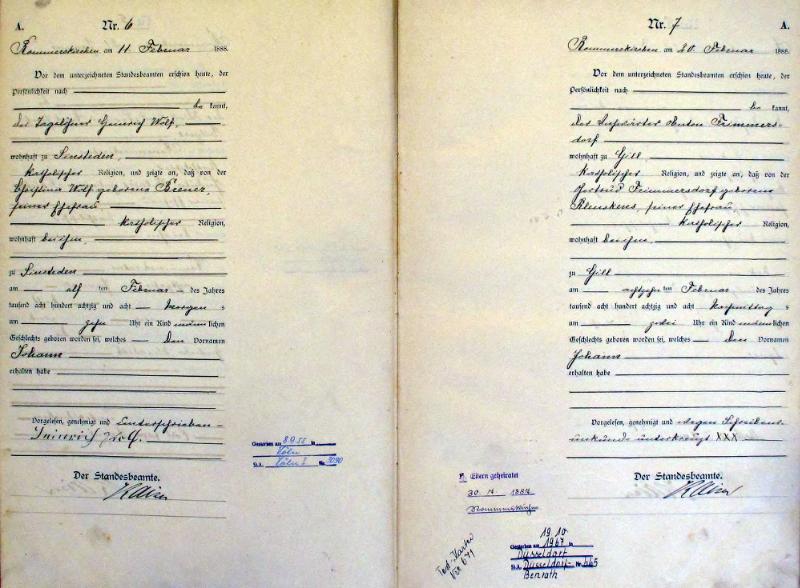 A.
Nr. 6
Rommerskirchen am 11 Februar 1888.
Vor dem unterzeichneten Standesbeamten erschien heute, der
Persönlichkeit nach
be kannt,
der Tagelöhner Heinrich Wolf,
wohnhaft zu Sinsteden,
katholischer Religion, und zeigte an, daß von der
Christina Wolf geborene Biener,
seiner Ehefrau,
katholischer Religion,
wohnhaft bei ihm,
zu Sinsteden
am elf ten Februar des Jahres
tausend acht hundert achtzig und acht morgens
um zehn Uhr ein Kind männlichen
Geschlechts geboren worden sei, welches den Vornamen
Johann
erhalten habe
Vorgelesen, genehmigt und unterschrieben
Heinrich Wolf.
Der Standesbeamte.
Gestorben am 8.9.55 in
Köln
St.A. Köln I Nr.
Nr. 7
A.
Rommerskirchen am 20. Februar 1888.
Vor dem unterzeichneten Standesbeamten erschien heute, der
Persönlichkeit nach
be kannt,
der Anton Frimmers-
dorf
wohnhaft zu Gill
katholischer Religion, und zeigte an, daß von der
Gertrud Frimmersdorf geborene
seiner Ehefrau,
katholischer Religion,
wohnhaft bei ihm,
zu Gill
am achtzehn ten Februar des Jahres
tausend acht hundert achtzig und acht nachmittags
um zwei Uhr ein Kind männlichen
Geschlechts geboren worden sei, welches den Vornamen
Johann
erhalten habe
Vorgelesen, genehmigt und wegen Schreibens-
unkunde unterkreuzt XXX
Der Standesbeamte.
Eltern geheiratet
1887
Rommerskirchen
Gestorben am 19.10 1967 in
Düsseldorf
St.A. Düsseldorf- Nr. 665
Benrath